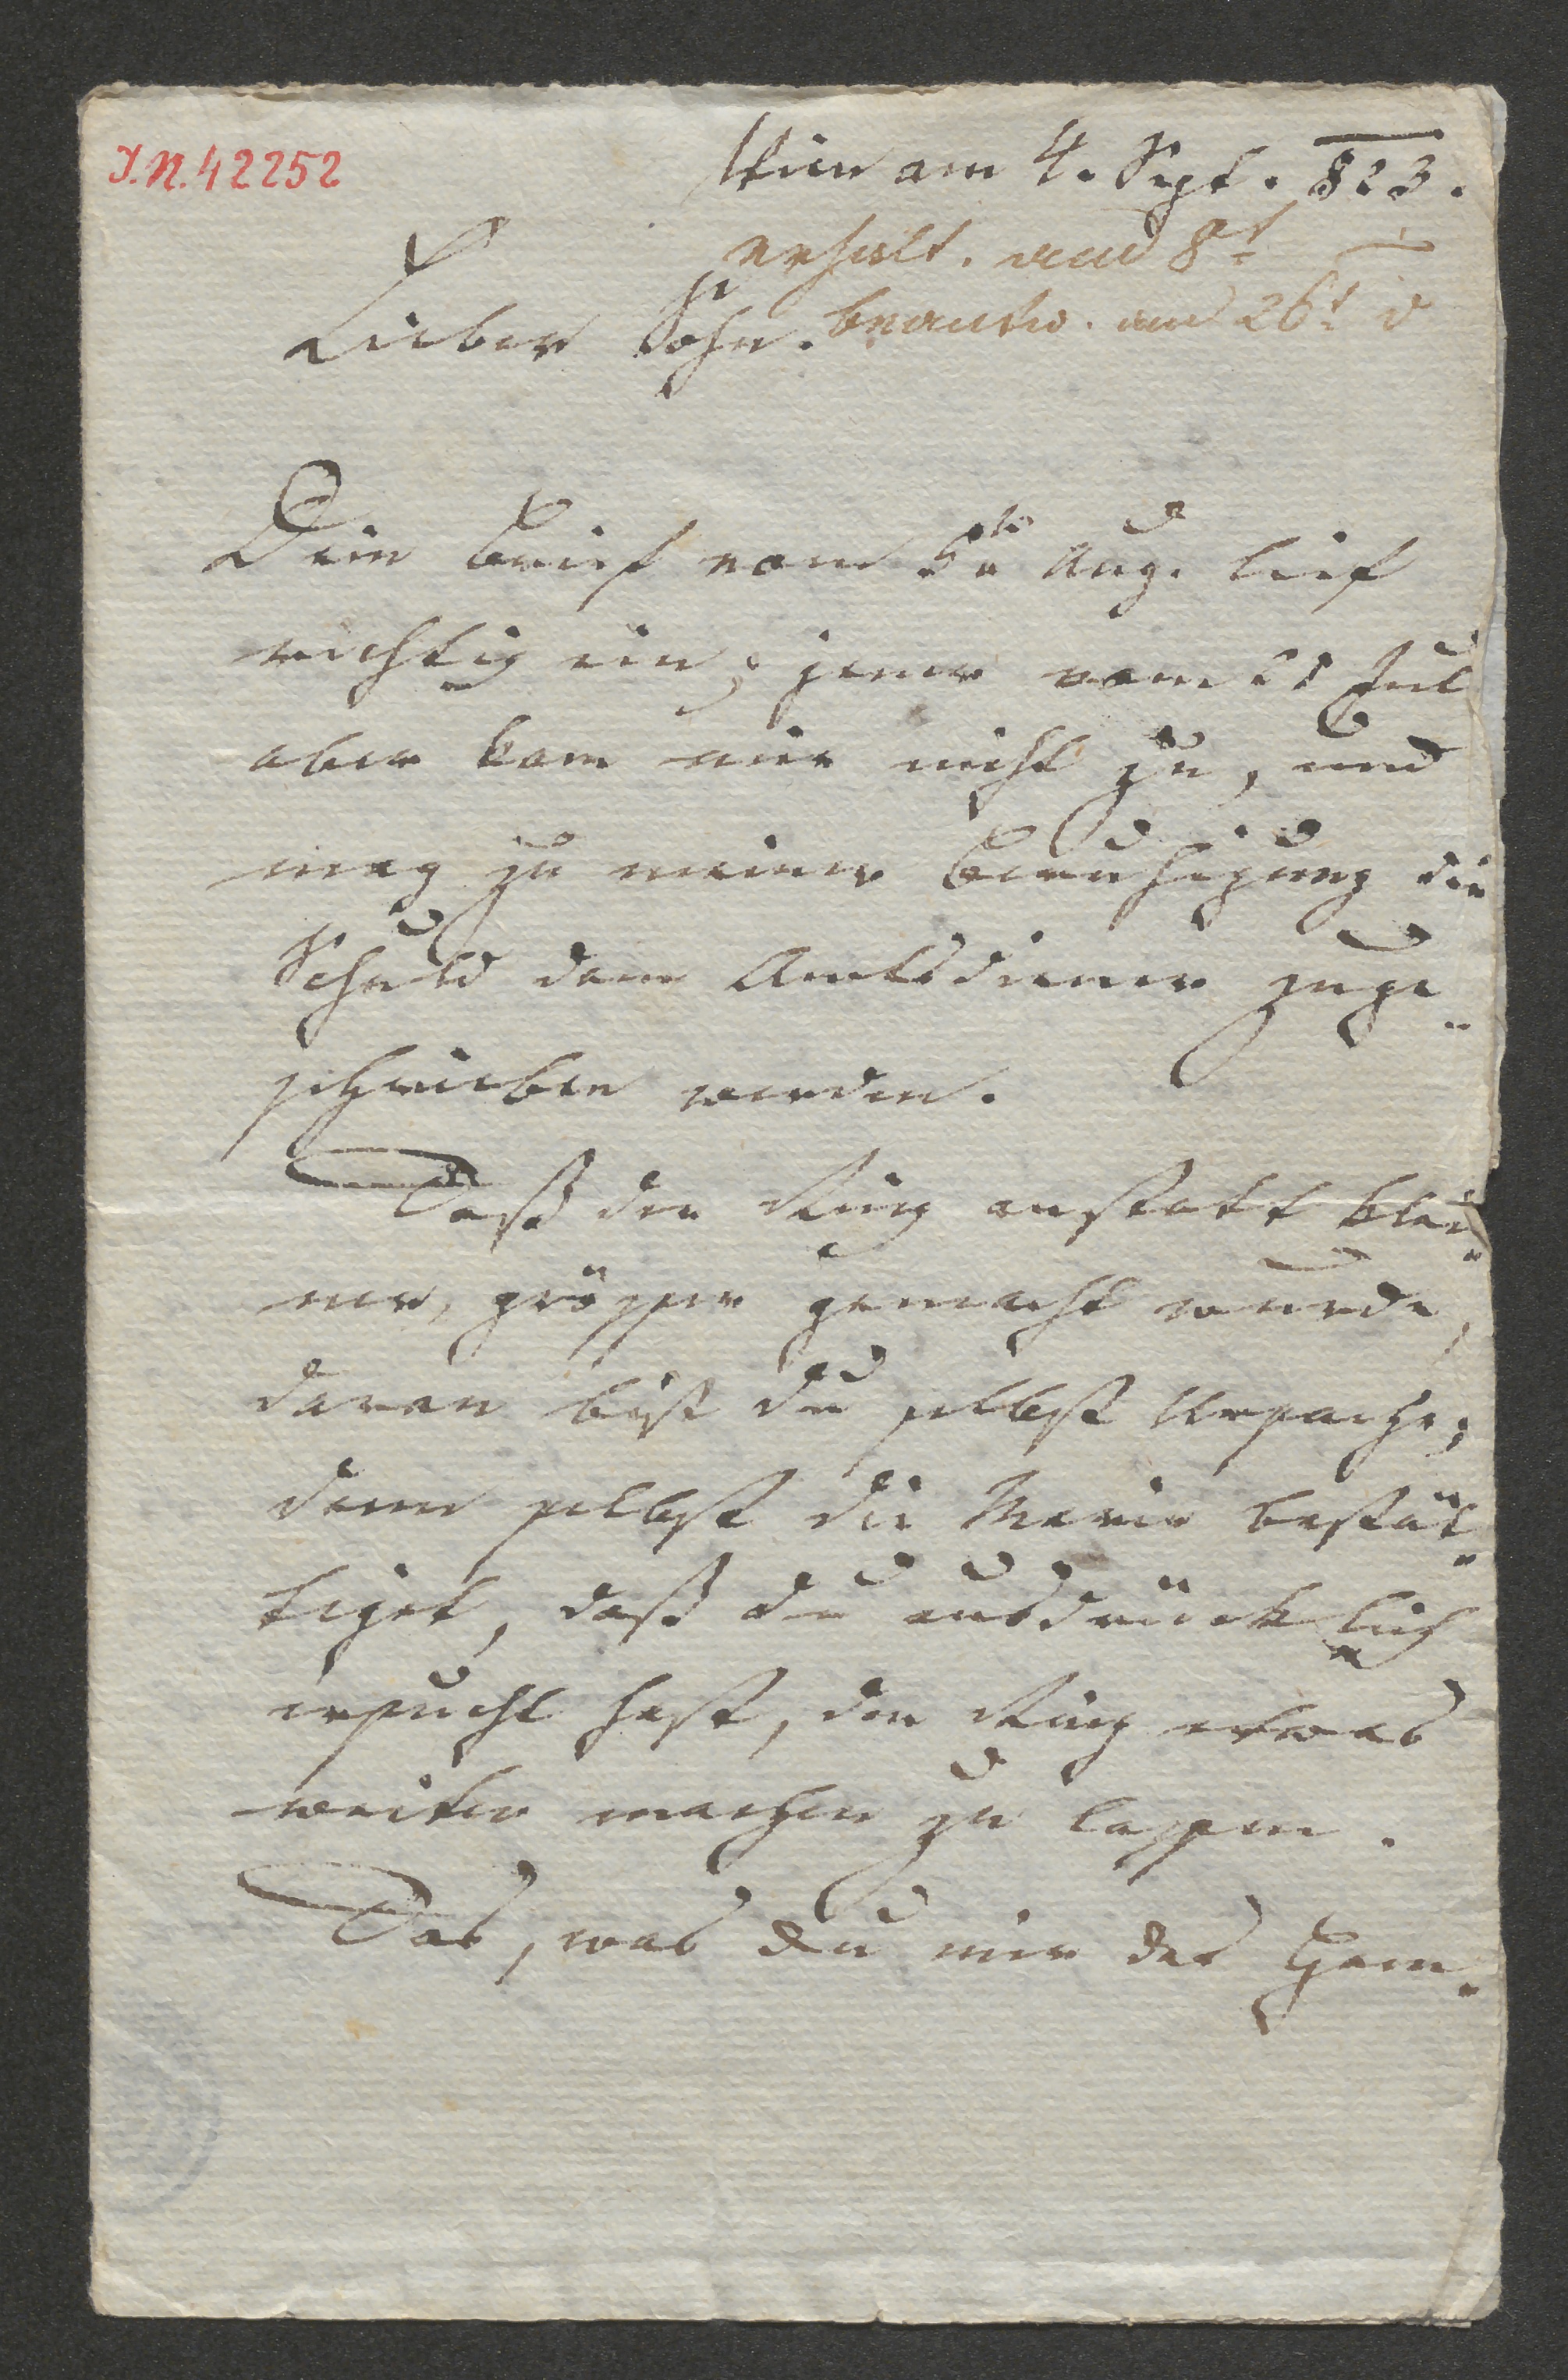 I.N. 42252
Wien am 4. Sept. 823.
erhalt. am 8t
Lieber Sohn. beantw. am 26t d
Dein Brief vom 5tn Aug. lief
richtig ein; jener vom 21 Jul
aber kam mir nicht zu, und
mag zu meiner Beruhigung die
Schuld dem Amtsdiener zuge„
schrieben werden.
Daß der Ring anstatt klei„
ner, grösser gemacht wurde,
daran bist du selbst Ursache;
denn selbst die Marie bestät„
tiget, daß du ausdrücklich
ersucht hast, den Ring etwas
weiter machen zu lassen.
Das, was du mir des